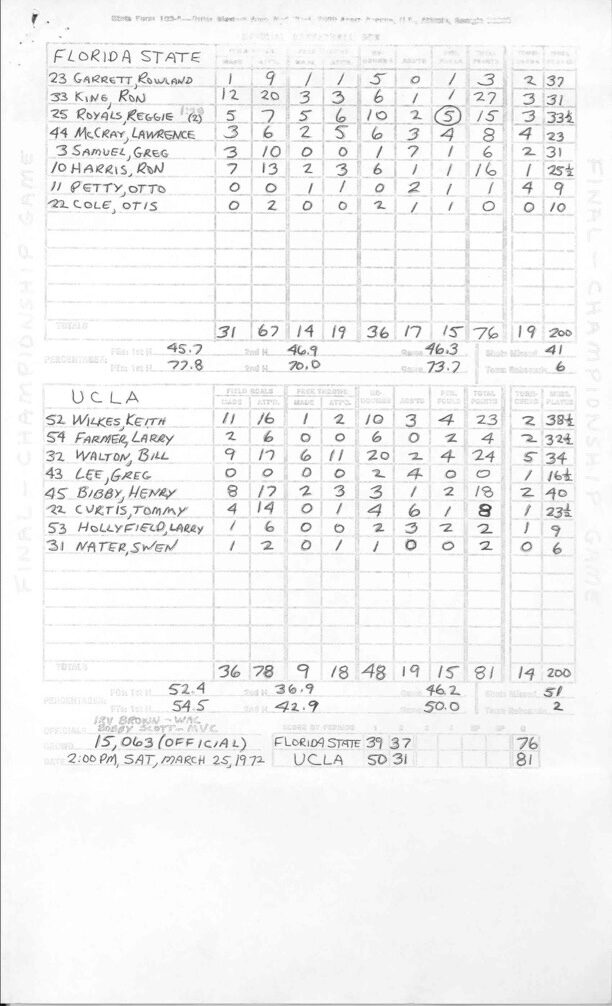 OFFICIAL BASKETBALL BOX
FLORIDA STATE
23 GARRETT, ROWLAND 1 9 1 1 5 0 1 3 2 37
33 KING, RON 12 20 3 3 6 1 1 27 3 31
25 ROYALS, REGGIE (2) 5 7 5 6 10 2 5 15 3 33½
44 McCRAY, LAWRENCE 3 6 2 5 6 3 4 8 4 23
3 SAMUEL, GREG 3 10 0 0 1 7 1 6 2 31
10 HARRIS, RON 7 13 2 3 6 1 1 16 1 25½
11 PETTY, OTTO 0 0 1 1 0 2 1 1 4 9
22 COLE, OTIS 0 2 0 0 2 1 1 0 0 10
TOTALS 31 67 14 19 36 17 15 76 19 200
FG: 1st H. 45.7 2nd H. 46.9 Game 46.3 Shots Missed 41
PERCENTAGES: FT: 1st H. 77.8 70.0 73.7 Team Rebounds 6
FINAL - CHAMPIONSHIP GAME
FINAL - CHAMPIONSHIP GAME
UCLA
FIELD GOALS FREE THROWS
MADE ATT'D. MADE ATT'D. REBOUNDS ASSTS FOULS TOTAL POINTS TURNOVERS MINS. PLAYED
52 WILKES, KEITH 11 16 1 2 10 3 4 23 2 38½
54 FARMER, LARRY 2 6 0 0 6 0 2 4 2 32½
32 WALTON, BILL 9 17 6 11 20 2 4 24 5 34
43 LEE, GREG 0 0 0 0 2 4 0 0 1 16½
45 BIBBY, HENRY 8 17 2 3 3 1 2 18 2 40
22 CURTIS, TOMMY 4 14 0 1 4 6 1 8 1 23½
53 HOLLYFIELD, LARRY 1 6 0 0 2 3 2 2 1 9
31 NATER, SWEN 1 2 0 1 1 0 0 2 0 6
TOTALS 36 78 9 18 48 19 15 81 14 200
FG: 1st H. 52.4 2nd H. 36.9 Game 46.2 Shots Missed 51
PERCENTAGES: FT: 1st H. 54.5 2nd H. 42.9 Game 50.0 Team Rebounds 2
IRV BROWN - WAC
OFFICIALS BOBBY SCOTT - MVC SCORE BY PERIODS 1 2 3 4
CROWD 15,063 (OFFICIAL) FLORIDA STATE 39 37 76
DATE 2:00 PM, SAT, MARCH 25, 1972 UCLA 50 31 81